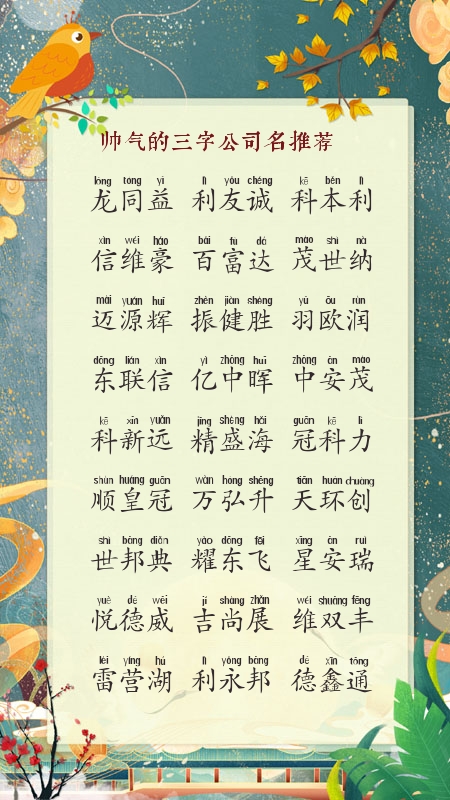 帅气的三字公司名推荐
lóng tóng yì lì yǒu chéng kē běn lì
龙同益 利友诚 科本利
xìn wéi háo bǎi fù dá mào shì nà
信维豪 百富达 茂世纳
mài yuán huī zhèn jiàn shèng yǔ ōu rùn
迈源辉 振健胜 羽欧润
dōng lián xìn yì zhōng huī zhōng ān mào
东联信 亿中晖 中安茂
kē xīn yuǎn jīng shèng hǎi guān kē lì
科新远 精盛海 冠科力
shùn huáng guān wàn hóng shēng tiān huán chuàng
顺皇冠 万弘升 天环创
shì bāng diǎn yào dōng fēi xīng ān ruì
世邦典 耀东飞 星安瑞
yuè dé wēi jí shàng zhǎn wéi shuāng fēng
悦德威 吉尚展 维双丰
léi yíng hú lì yǒng bāng dé xīn tōng
雷营湖 利永邦 德鑫通